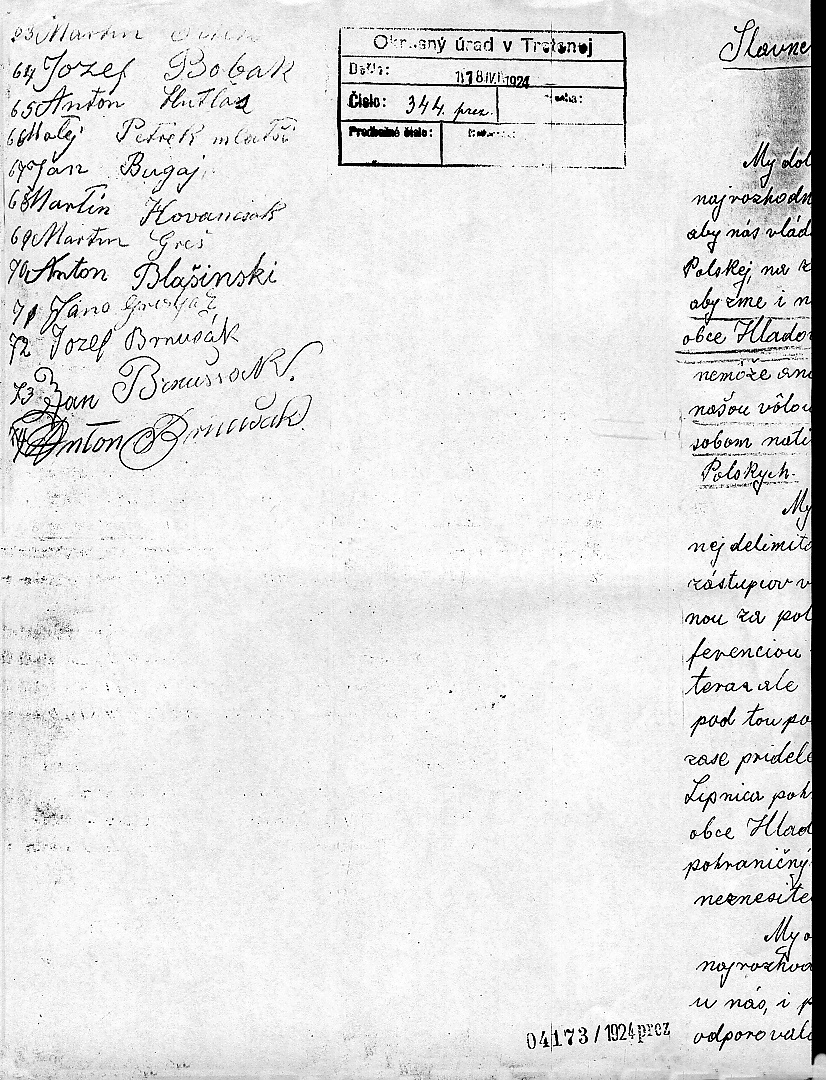 Martin
64 Jozef Bobak
65 Anton Hutlas
66 Matej Petrek mlatší
67 Ján Bugaj
68 Martin Hovancsak
69 Martin Greš
70 Anton Blašinski
71 Jano
72 Jozef Brnušák
73 Jan
74 Anton
Okresný úrad v Trstenej
Došlo: 18/IV 1924
Číslo: 344 prez.
Predbežné číslo:
04173/1924 prez
Slavne
My dol
najrozhodn
aby nás vlád
Polskej, na z
aby zme i n
obce Hlado
nemôže an
našou vôlou
sobom nati
Polskych.
My
nej delimita
zástupcov v
nou za pol
ferenciou
teraz ale
pod tou po
zase pridele
Lipnica poh
obce Hlad
pohraničný
neznesite
My o
najrozhod
u nás, i p
odporovala